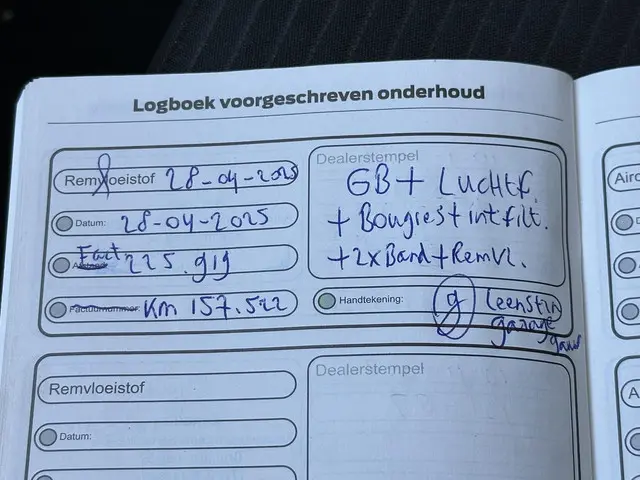 Logboek voorgeschreven onderhoud
Remvloeistof 28-04-2025
Datum: 28-04-2025
Fact 225.919
Factuurnummer: KM 157.522
Dealerstempel
GB + Luchtf.
+ Bougies + intfilt.
+ 2x Band + Remvl.
Handtekening:
garage
Remvloeistof
Datum:
Dealerstempel
Airc
D
A